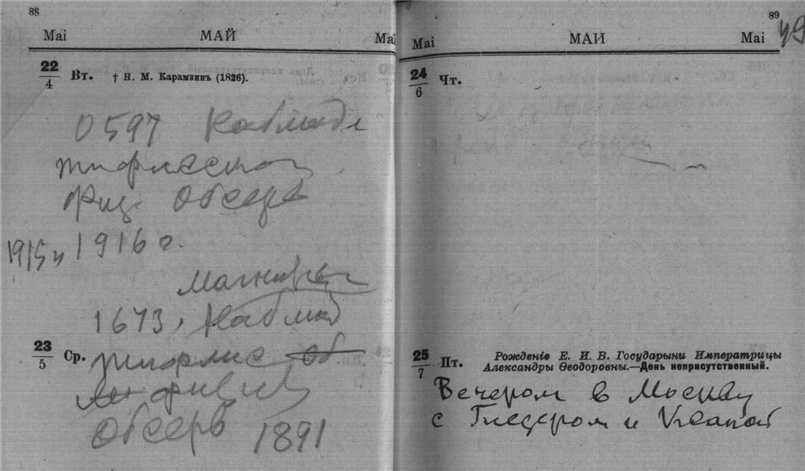 88
Mai МАЙ Ma
22/4 Вт. † Н. М. Карамзинъ (1826).
0597 Наблюд
тифлисской
физ. Обсерв
1915 и 1916 г.
магнитн
1673, Наблюд
23/5 Ср. тифлис об
физич
Обсерв 1891
89
Mai МАЙ Mai 49
24/6 Чт.
25/7 Пт. Рожденіе Е. И. В. Государыни Императрицы
Александры Ѳеодоровны.—День неприсутственный.
Вечером в Москву
с Гнедером и